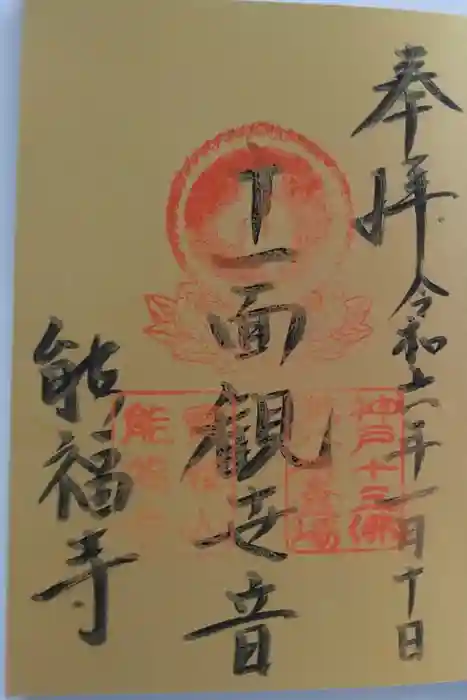 奉拝
令和六年一月十日
十一面観世音
神戸十三佛
霊場
能福寺